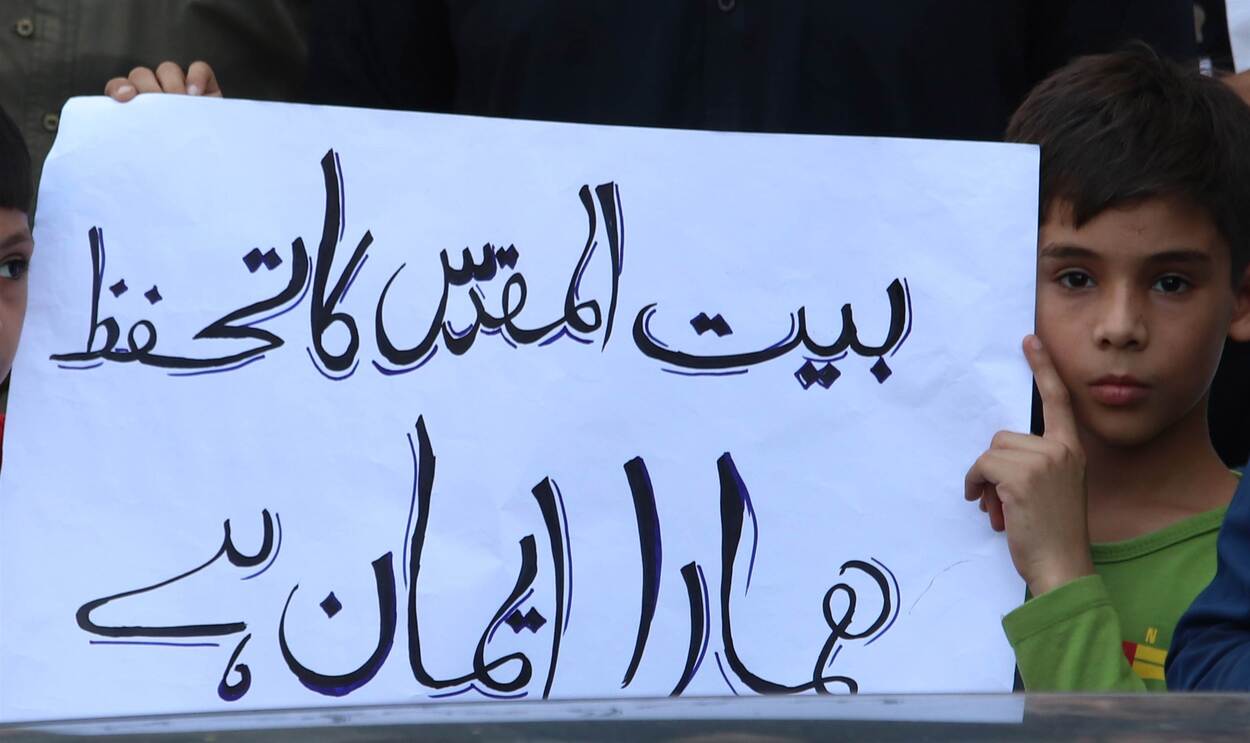 بیت المقدّس کا تحفظ
ہمارا ایمان ہے
N